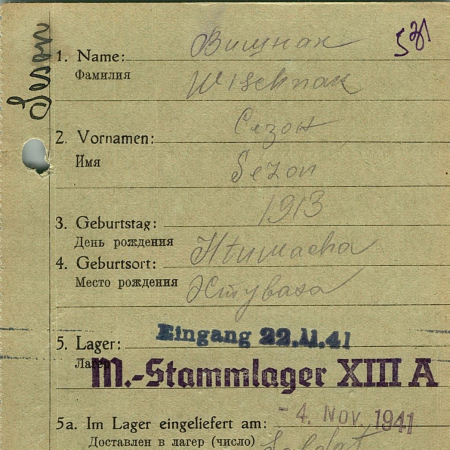 Seson
1. Name: Вишнак 581
Фамилия Wischnak
2. Vornamen: Сезон
Имя Sezon
3. Geburtstag: 1913
День рождения
4. Geburtsort:
Место рождения
Eingang 22.11.41
5. Lager:
M.-Stammlager XIII A
5a. Im Lager eingeliefert am: - 4. Nov. 1941
Доставлен в лагерь (число) Soldat